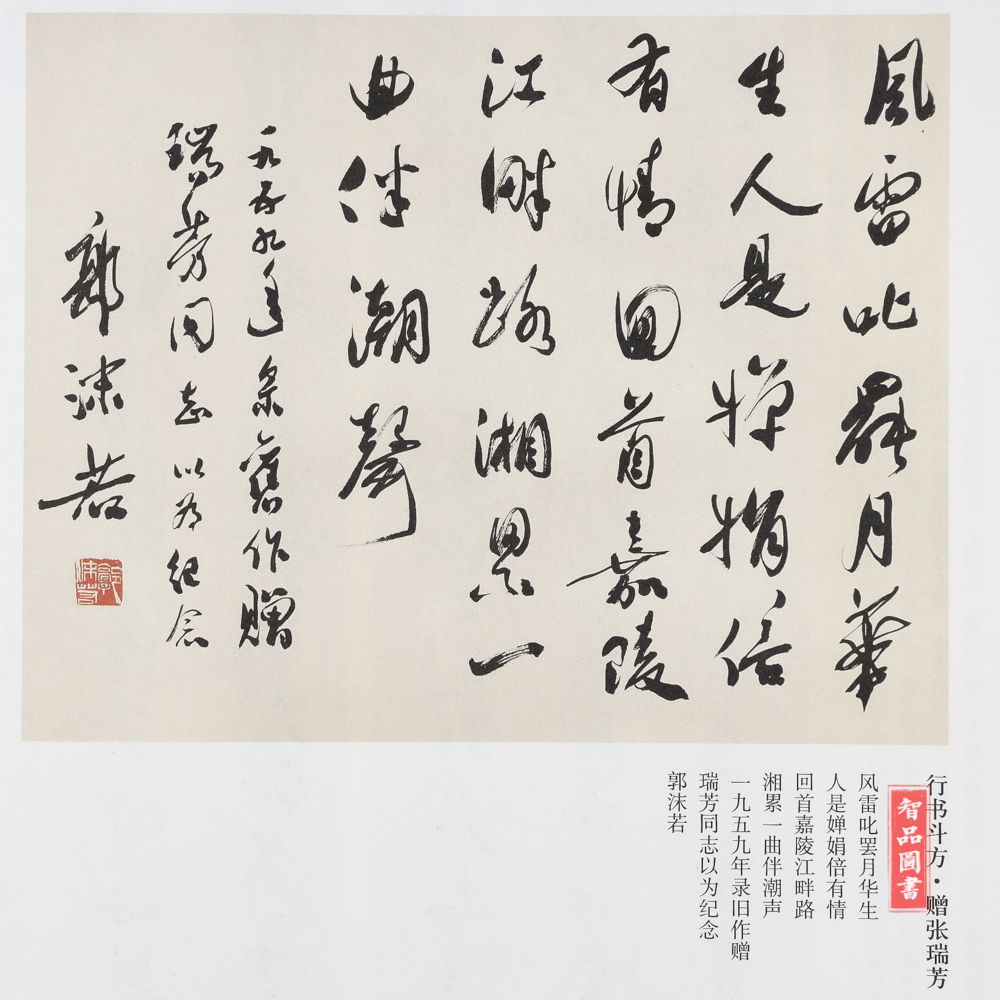 風雷叱罷月華
生人是嬋娟倍
有情回首嘉陵
江畔路湘累一
曲伴潮聲
一九五九年录舊作贈
瑞芳同志以为纪念
郭沫若
郭沫若
行书斗方·赠张瑞芳
智品圖書
风雷叱罢月华生
人是婵娟倍有情
回首嘉陵江畔路
湘累一曲伴潮声
一九五九年录旧作赠
瑞芳同志以为纪念
郭沫若